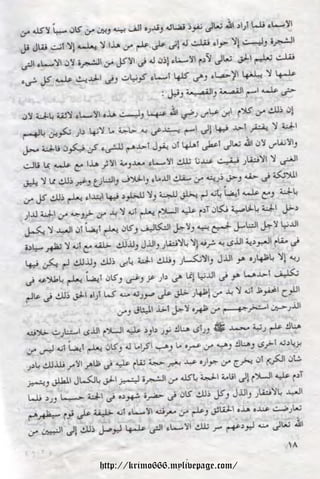 الاسماء فلما أراد الله تعالى نفوذ قضائه وقدره ألف بينه وبين من كان سبباً لاكله من
الشجرة وليست إلا حواء فقلت له إلى على علم من هذا لا يعلمه إلا أنت فقال قل
فقلت تعليم الحق تعالى لآدم الاسماء إذن له في الاكل من الشجرة لان الاسماء التى
علمها لا يبلغها الإحصاء وهى كلها أسماء كونيات وفى الحديث علمه كل شىء
حتى علمه اسم القصعة والقصيعة وقيل :
إن ذلك من كلام ابن عباس رضي الله عنهما وليست هذه الاسماء لائقة بالجنة لان
الجنة لا يفتقر أحد فيها إلى اسم يستدعى به حاجة ما لانها دار تكوين بالهمم
والانفاس لان الله تعالى أعطى أهلها أن يقول أحدهم للشىء كن فيكون فالجنة محل
الغنى لا الافتقار فبقيت عندنا تلك الاسماء معدومة الاثر هذا مع علمه بما قالت
الملائكة فى حقه وحق ذريته من سفك الدماء والخلاف والتنازع وغير ذلك مما لا يليق
بالجنة ومع علمه أيضاً بأنه لم يخلق للجنة ولا للخلود فيها ابتداء يعلم ذلك كل من
دخل الجنة بالخاصية فكان آدم عليه السلام يعلم أنه لا بد من خروجه من الجنة لدار
الدنيا لاجل التناسل لجميع بنيه ولاجل التكاليف وكان يعلم أيضاً أن العبد لا يكمل
فى مقام العبودية الذى به شرفه إلا بالافتقار والذل ولذلك خلقه مع انه لا تظهر سيادة
ربه إلا باظهاره هو الذل والانكسار وفلك الجنة يأبى ذلك ولذلك لم يكن فيها
تكليف أحدهما هو فى الدنيا إنما هى دار عز وغنى وكان أيضاً يعلم باطلاعه فى
اللوح المحفوظ أنه لا بد من إظهار خلق على صورته منه كما أراه الحق ذلك فى عالم
الذر حين استخرجهم من ظهره لاجل أخذ الميثاق ومن
هناك علم رتبة محمد ﷺ ورأى هناك نور داود عليه السلام الذى استنارت خلافته
بزيادته أخرى وهناك وهبه من عمره ما وهب إكراما له وكان يعلم أيضاً أنه ليس من
شان الكريم أن يخرج من جواره عبد بغير حجة تقام عليه فى ظاهر الامر فلذلك بادر
آدم عليه السلام إلى اقامة الحجة باكله من الشجرة ليتميز الحق بالكمال المطلق ويتميز
العبد بالافتقار والذل وكل ذلك كان فى حضرة شهوده فى الجنة حسبما ورد فلما
تعارضت عنده هذه الحقائق وعلم من معرفته الاسماء أنه خليفة على قوم سيظهرهم
الله تعالى منه ليودعهم سر تلك الاسماء التى علمها ليوصل ذلك إلى النبيين من
١٨
http://krimo666.mylivepage.com/